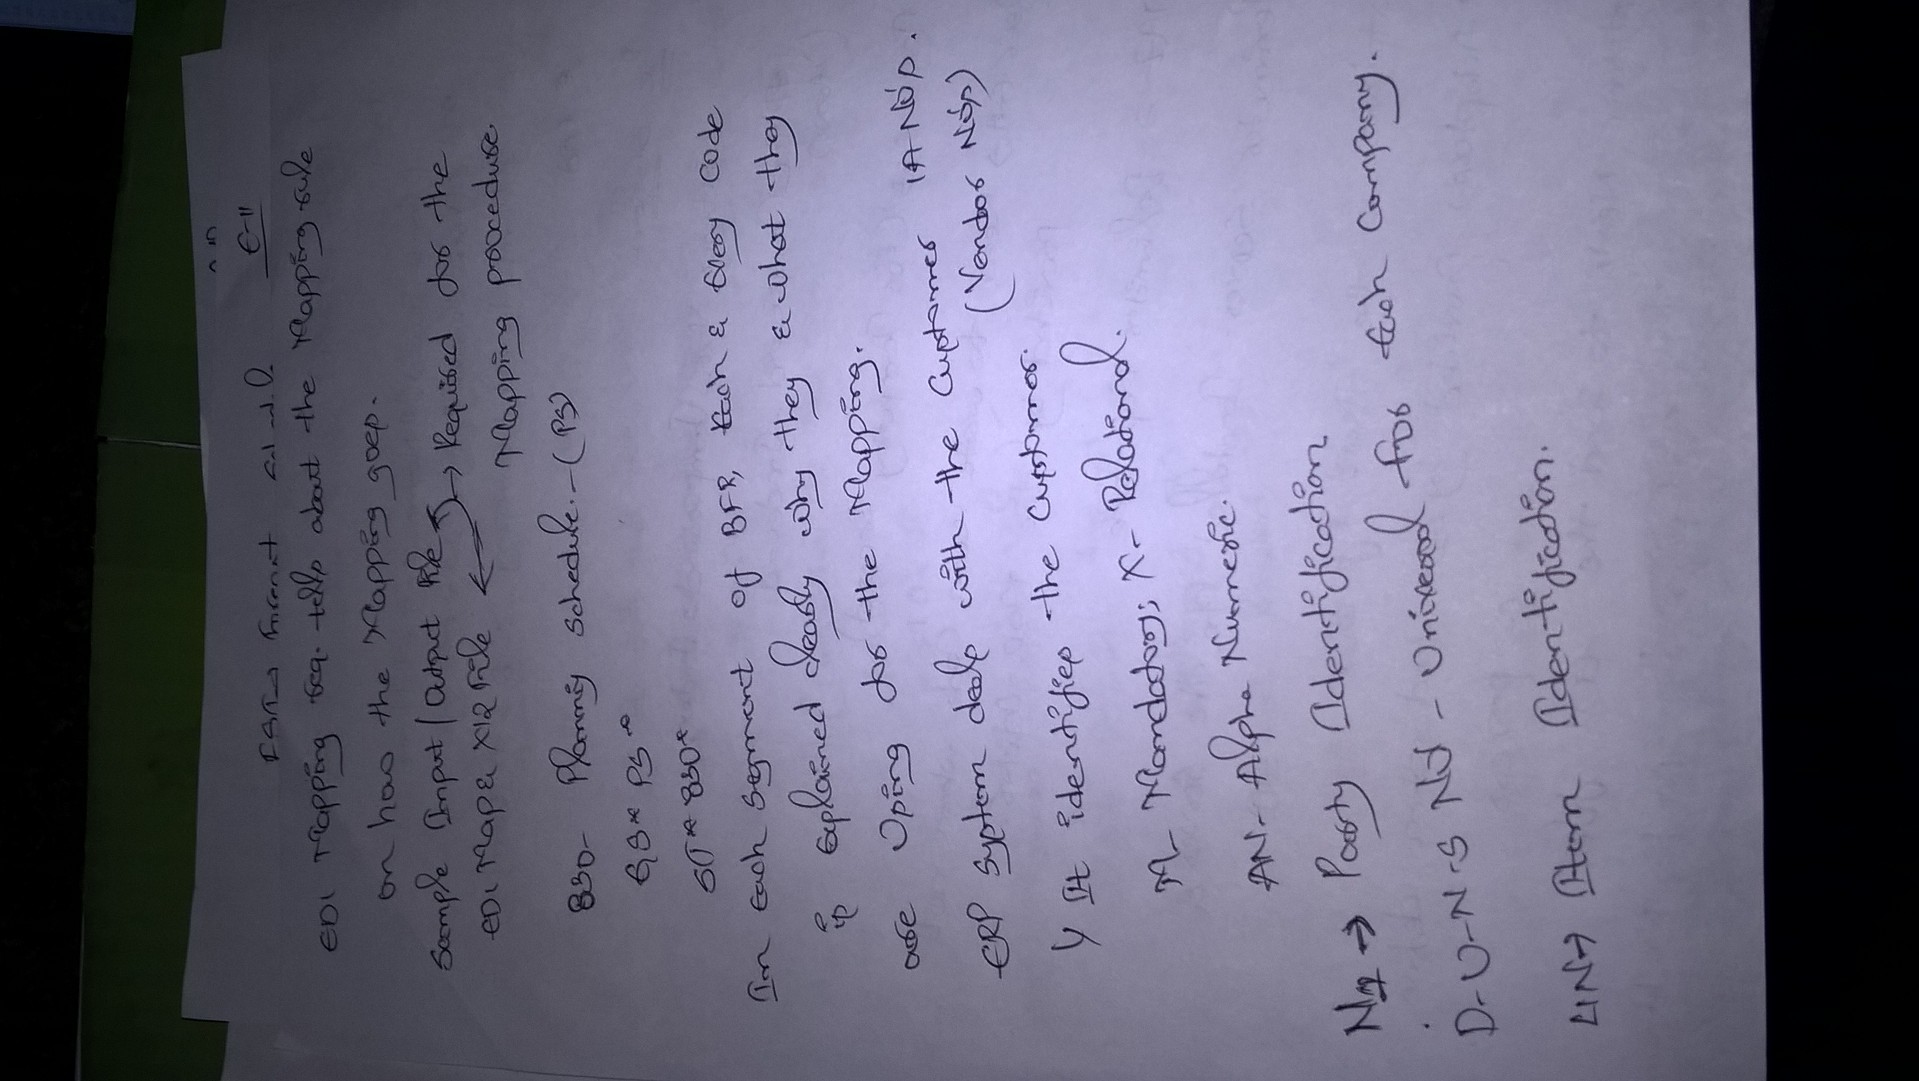 E-11
EDI Mapping Seq. tells about the Mapping rule
on how the Mapping goes.
Sample Input / Output File → Required for the
EDI Map & X12 File ← Mapping procedure
830- Planning Schedule.- (PS)
GS* PS*
ST* 830*
In Each Segment of BFR, Each & Every Code
is Explained clearly why they & what they
are Using for the Mapping.
ERP System deals with the Customer IA Nos.
(Vendor Nos)
y It identifies the Customer.
M- Mandatory; X- Relational.
AN- Alpha Numeric.
N1 → Party Identification
D-U-N-S No - Universal For Each Company.
LIN → Item Identification.